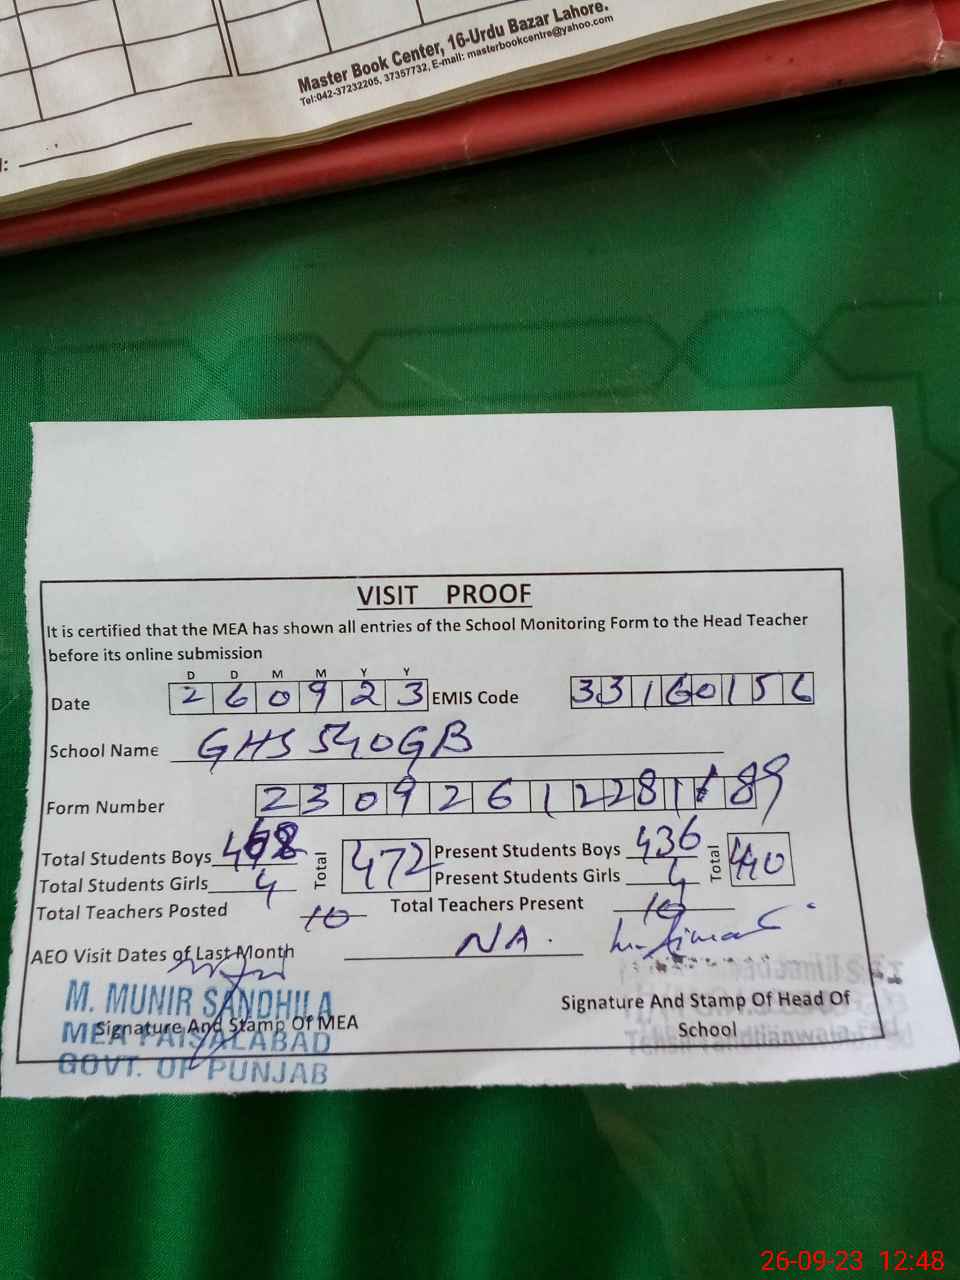 Master Book Center, 16-Urdu Bazar Lahore.
Tel:042-37232205, 37357732, E-mail: masterbookcentre@yahoo.com
VISIT PROOF
It is certified that the MEA has shown all entries of the School Monitoring Form to the Head Teacher
before its online submission
D D M M Y Y
Date 2 6 0 9 2 3 EMIS Code 33160156
School Name GHS 540GB
Form Number 2309261228 89
Total Students Boys 468 Total 472 Present Students Boys 436 Total 440
Total Students Girls 4 Present Students Girls 4
Total Teachers Posted 10 Total Teachers Present 10
AEO Visit Dates of Last Month NA.
M. MUNIR SANDHILA
Signature And Stamp Of MEA
MEA FAISALABAD
GOVT. OF PUNJAB
Signature And Stamp Of Head Of
School
26-09-23 12:48